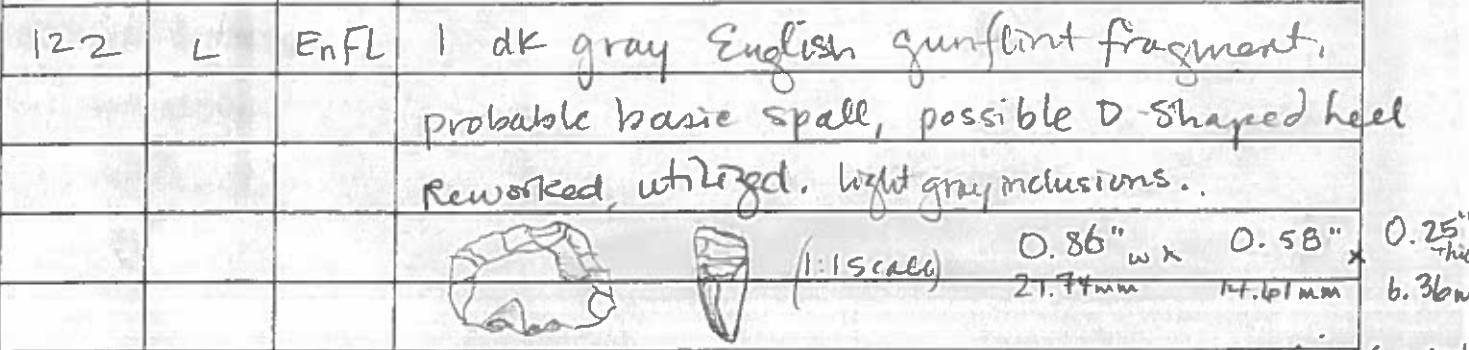 122 L EnFL 1 dk gray English gunflint fragment,
probable basic spall, possible D-shaped heel
Reworked, utilized. light gray inclusions..
(1:1 Scale) 0.86" w x 0.58" x 0.25"
21.74mm 14.61mm 6.36